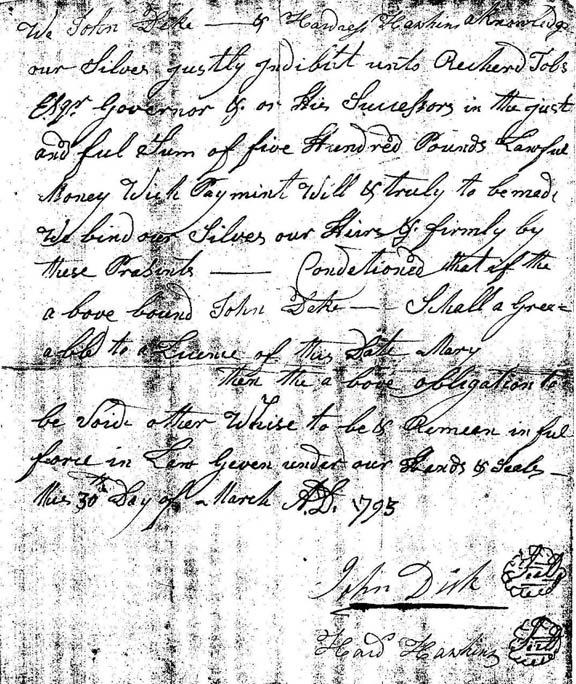 We John Deke —— & Hardress Hawkins aknowledg
our Silves justly Indibtit unto Recherd Tobs
Esqr Governor &. or His Successors in the just
and ful Sum of five Hundred Pounds Lawful
Money Wich Paymint Will & truly to be made
We bind our Silves our Hirs &. firmly by
these Prasints —— Condetioned that if the
a bove bound John Deke — Shall a Gree=
able to a Licence of this Date Mary
then the a bove obligation to
be Void other Whise to be & Remean in ful
force in Law Geven under our Hands & Seals —
this 30th Day of March A.D. 1793
John Dick Seal
Hard Hawkins Seal